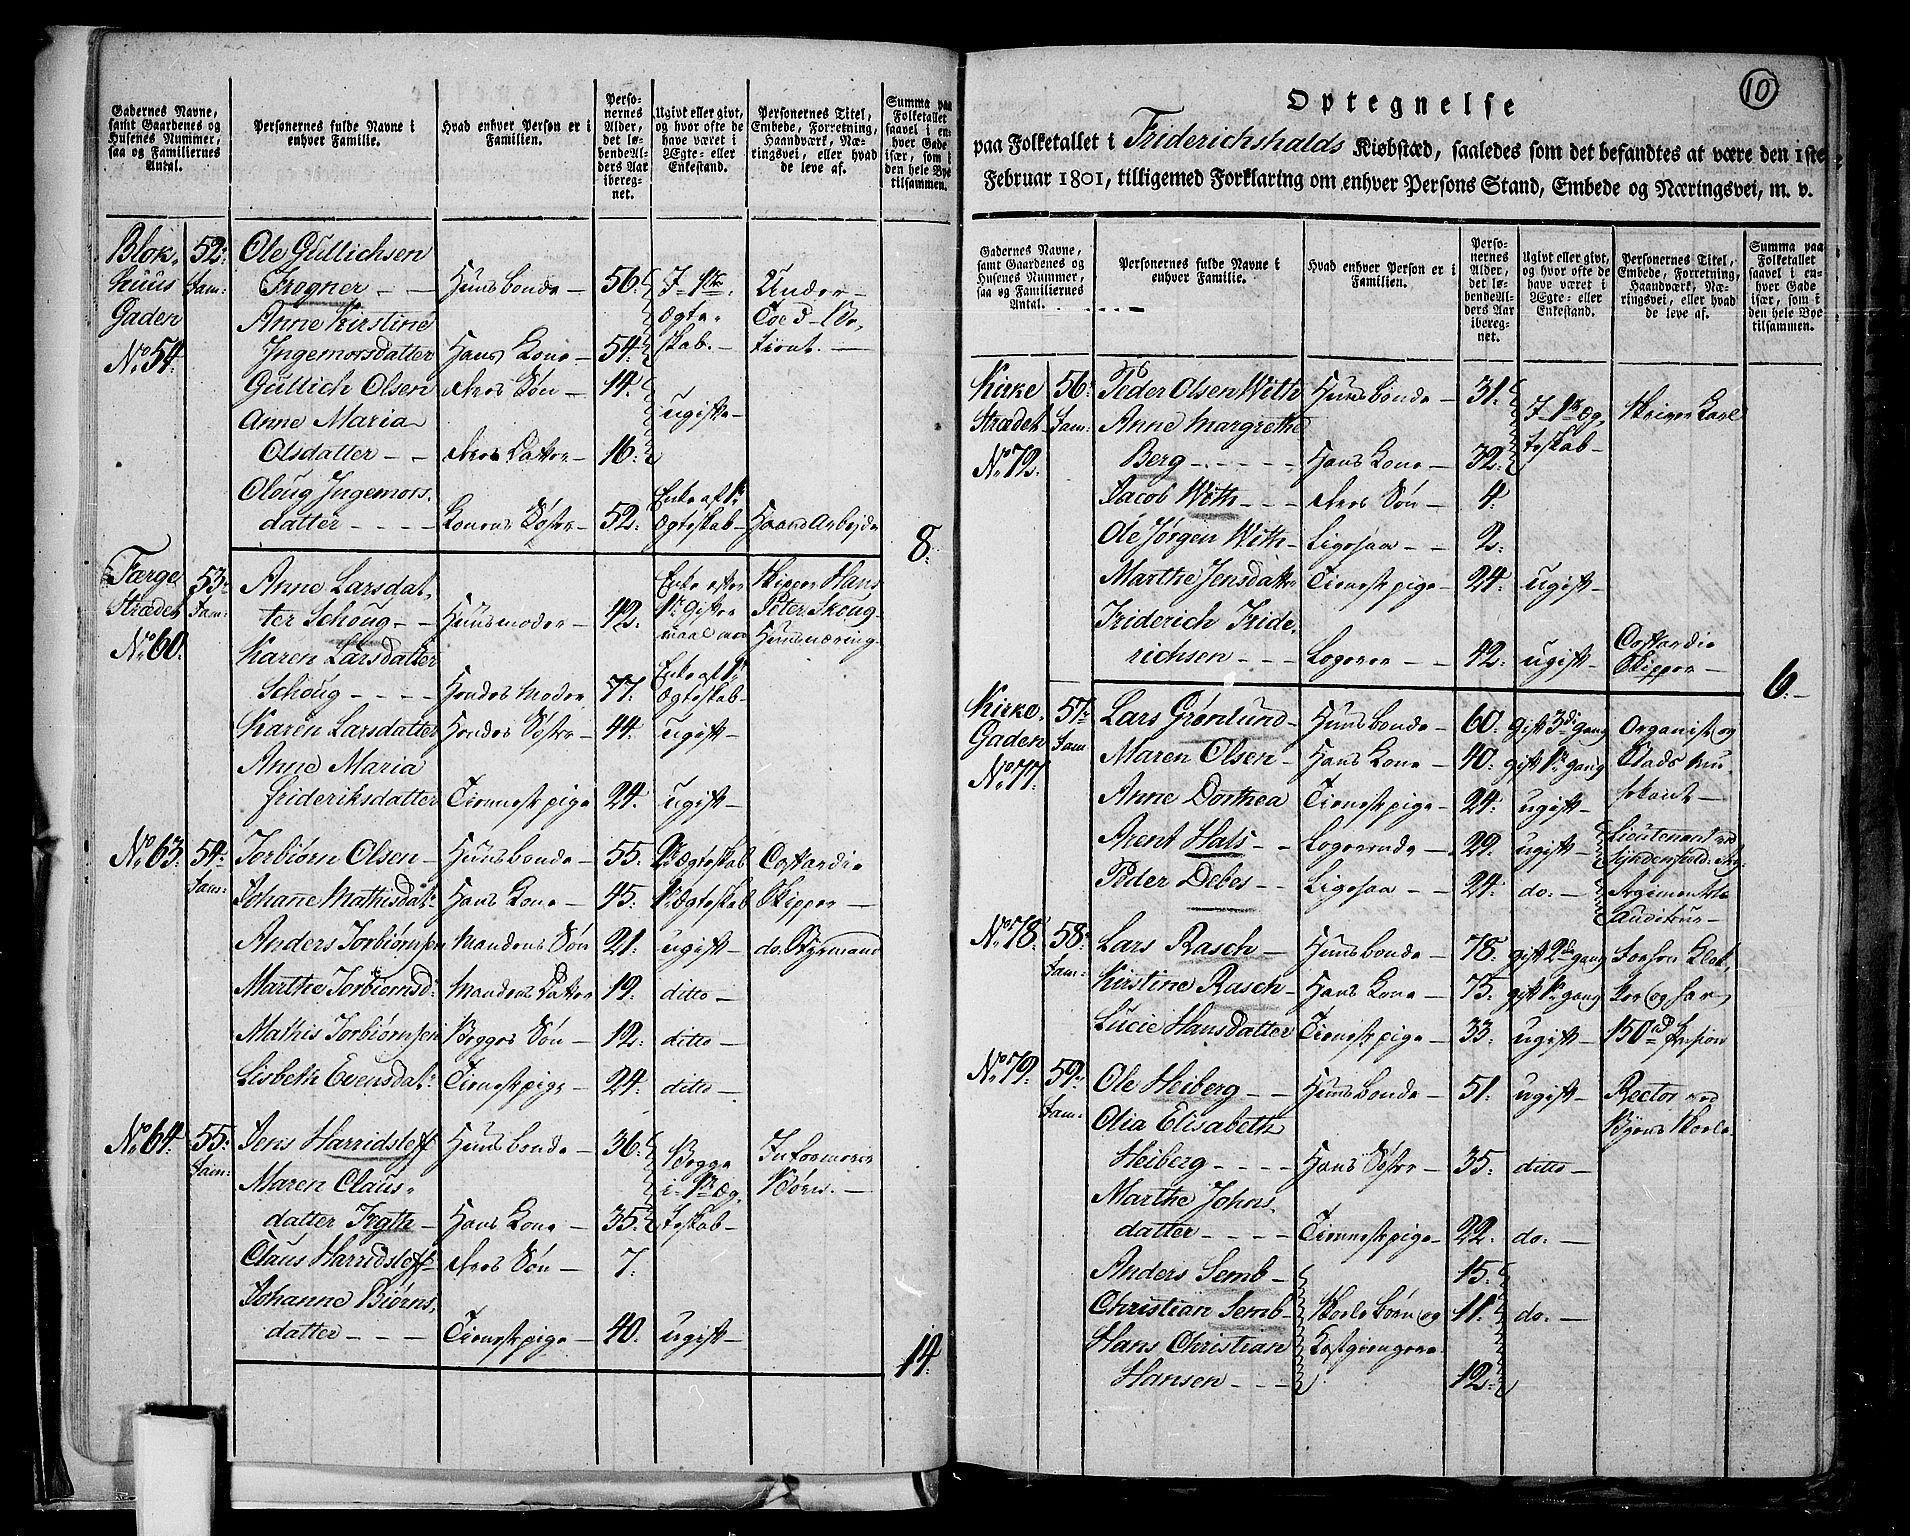 Gadernes Navne, samt Gaardenes og Husenes Nummer, saa og Familiernes Antal.
Personernes fulde Navne i enhver Familie.
Hvad enhver Person er i Familien.
Personernes Alder, det løbende Alders Aar iberegnet.
Ugivt eller givt, og hvor ofte de have været i Ægte- eller Enkestand.
Personernes Titel, Embede, Forretning, Haandværk, Næringsvei, eller hvad de leve af.
Summa paa Folketallet saavel i enhver Gade især, som i den hele Bye tilsammen.
Blok- 52: Ole Gullichsen
huus Fam: Trogner - - Huusbonde - 56: I 1ste Under
Gaden Anne Kirstine Ægte- Toed-
No 54. Ingemorsdatter Hans Kone - 54: skab.
Gullich Olsen deres Søn - 14:
Anne Maria ugifte
Olsdatter - - deres Datter - 16:
Oloug Ingemors- Enke af 1ste
datter - - - - Konens Søster - 52: Ægteskab - Haand Arbejde
8.
Færge 53: Anne Larsdat- Enke efter Skipper Hans
Strædet Fam: ter Schoug - - Huusmoder - 42: 1ste Gifter Peter Skoug
No 60. maal Huusnæring
Karen Larsdatter Enke af 1ste
Schoug - - - - Hendes Moder - 77. Ægteskab -
Karen Larsdatter Hendes Søster - 44. ugift -
Anne Maria
frideriksdatter Tienestpige 24. ugift -
No 63. 54: Torbiørn Olsen - Huusbonde - 55. 1ste Ægteskab Coffardie
Fam: Johane Mathisdat: Hans Kone - 45. 1ste Ægteskab Skipper -
Anders Torbiørnsen Mandens Søn 21. ugift - do. Styrmand
Marthe Torbiørnsd: Mandens Datter 19. ditto -
Mathis Torbiørnsen Begges Søn - 12. ditto -
Lisbeth Evensdat: Tienestpige - 24. ditto -
No 64. 55: Jens Harridsleff Huusbonde - 36: Begge Informerer
Fam: Maren Claus- i 1ste Æg- Børn. -
datter Tygth - Hans Kone - 35: teskab -
Claus Harridsleff deres Søn - 7.
Johanne Biørns-
datter - - - Tienestpige - 40. ugift -
14.
10
Optegnelse
paa Folketallet i Friderichshalds Kiøbstæd, saaledes som det befandtes at være den 1ste
Februar 1801, tilligemed Forklaring om enhver Persons Stand, Embede og Næringsvei, m. v.
Gadernes Navne, samt Gaardenes og Husenes Nummer, saa og Familiernes Antal.
Personernes fulde Navne i enhver Familie.
Hvad enhver Person er i Familien.
Personernes Alder, det løbende Alders Aar iberegnet.
Ugivt eller givt, og hvor ofte de have været i Ægte- eller Enkestand.
Personernes Titel, Embede, Forretning, Haandværk, Næringsvei, eller hvad de leve af.
Summa paa Folketallet saavel i enhver Gade især, som i den hele Bye tilsammen.
Kirke 56: Peder Olsen With Huusbonde - 31: I 1ste Æg- Skriver Karl
Strædet Fam: Anne Margrethe teskab -
No 72. Berg - - - - - Hans Kone - 32:
Jacob With - - - deres Søn - 4.
Ole Jørgen With - Ligesaa - - 2.
Marthe Jensdatter Tienestpige - 24. ugift -
Friderich Fride- Coffardie
richsen - - - Logerer - - 42. ugift - Skipper -
6. -
Kirke- 57: Lars Grønlund - Huusbonde - 60. gift 3die gang Organist og
Gaden Fam: Maren Olsen - Hans Kone - 40. gift 1ste gang Stads Mu-
No 77. Anne Dorthea Tienestpige - 24. ugift - sikant -
Arent Hals - Logerende - 29. ugift - Lieutenant ved Syndenfield:
Peder Debes - - Ligesaa - - 24. do: - Regiments Auditeur -
No 78. 58: Lars Rasch - Huusbonde - 78. gift 2den gang Forhen Klok-
Fam: Kirstine Rasch - Hans Kone - 75. gift 1ste gang ker og har
Lucie Hansdatter Tienestpige - 33. ugift - 150 rd Pension
No 79. 59: Ole Heiberg - Huusbonde - 51. ugift - Rector ved
Fam: Olia Elisabeth Byens Skole
Heiberg - - - - Hans Søster - 35. ditto -
Marthe Johns-
datter - - - - Tienestpige - 22. do: -
Anders Semb - 15:
Christian Semb - Skole Børn og 11: do: -
Hans Christian Kostgiengere
Hansen - - - 12: